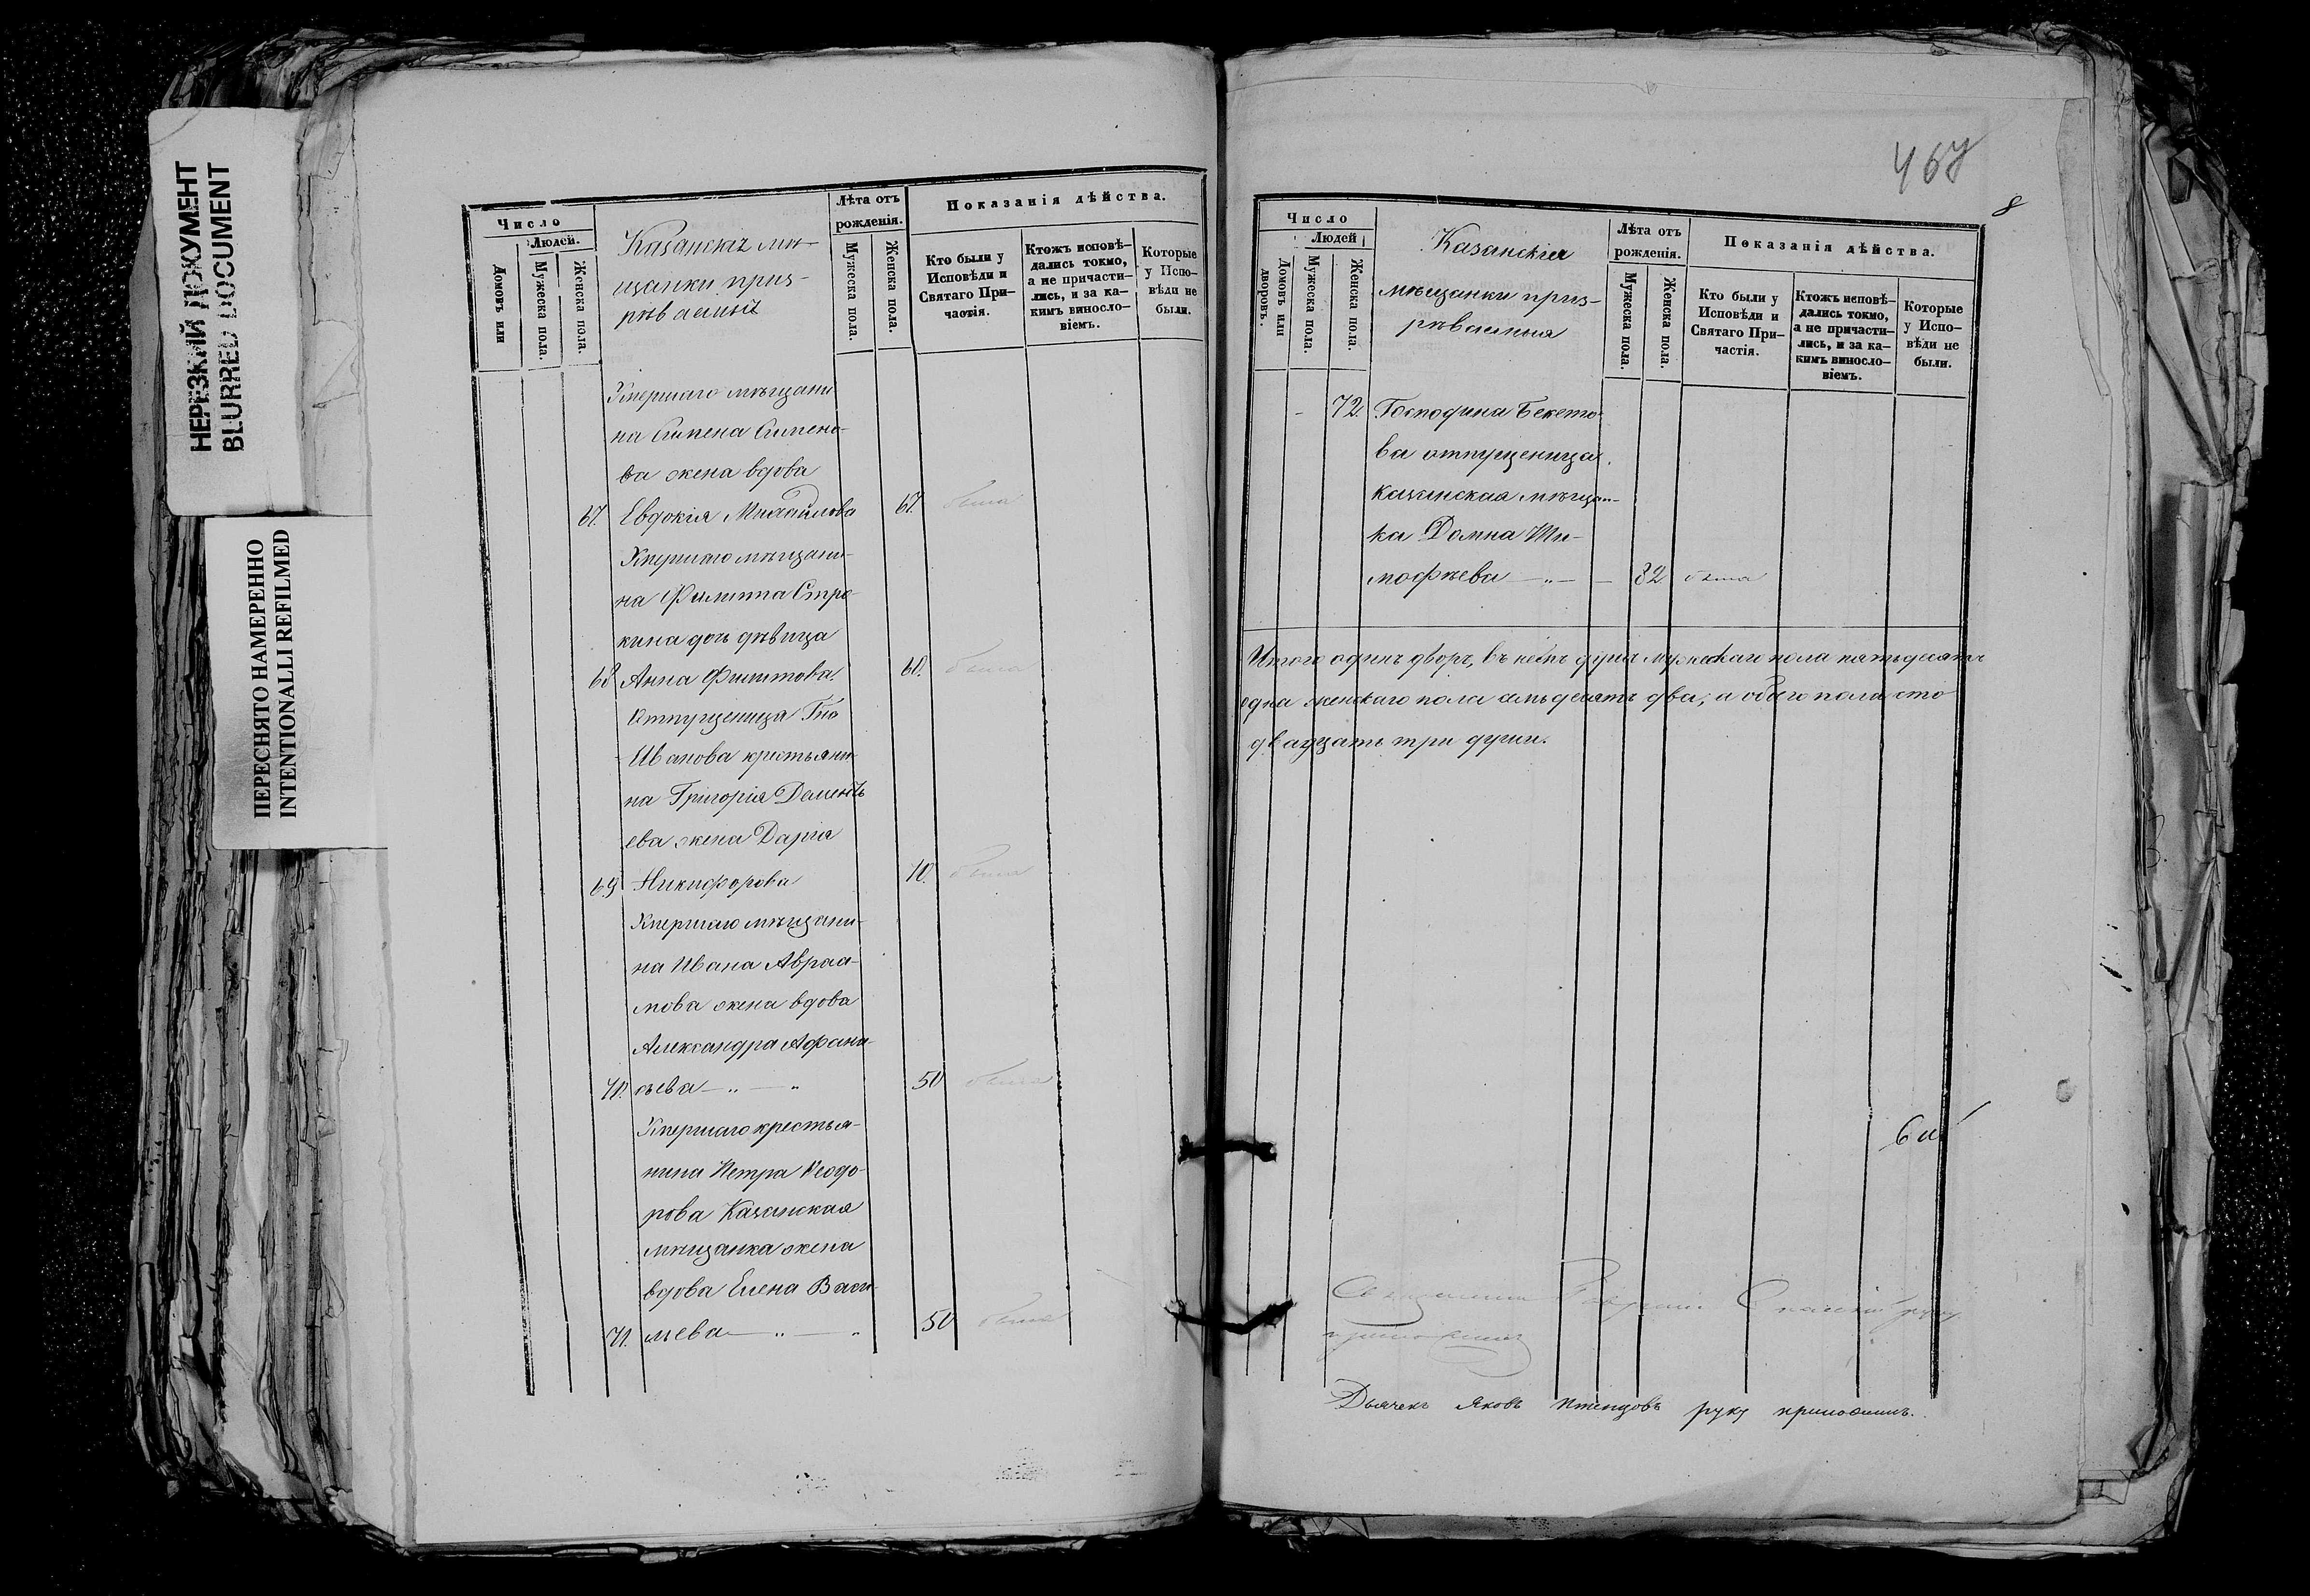 НЕРЕЗКИЙ ДОКУМЕНТ
BLURRED DOCUMENT
ПЕРЕСНЯТО НАМЕРЕННО
INTENTIONALLI REFILMED
Число
Людей.
Домовъ или
Мужеска пола.
Женска пола.
Казанскiя мѣ-
щанки приз-
рѣваемыя
Лѣта отъ
рожденія.
Мужеска пола.
Женска пола.
Показанія дѣйства.
Кто были у
Исповѣди и
Святаго При-
частія.
Ктожъ исповѣ-
дались токмо,
а не причасти-
лись, и за ка-
кимъ виносло-
віемъ.
Которые
у Испо-
вѣди не
были.
Умершаго мѣщани
на Симена Симено-
ва жена вдова
67. Евдокія Михайлова 67. была
Умершаго мѣщани-
на Филиппа Стро-
кина дочь дѣвица
68 Анна Филипова. 60. была
Отпущеница Гна
Иванова крестьяни-
на Григорія Дементь
ева жена Дарія
69 Никифорова 70. была
Умершаго мѣщани-
на Ивана Авраа-
мова жена вдова
Александра Афана-
70. сьева — „ — „ 50 была
Умершаго крестья-
нина Петра Ѳеодо-
рова Казанская
мѣщанка жена
вдова Елена Васи-
71. льева — „ — „ 50 была
467
8
Число
Людей
Домовъ или
дворовъ.
Мужеска пола.
Женска пола.
Казанскія
мѣщанки приз-
рѣваемыя
Лѣта отъ
рожденія.
Мужеска пола.
Женска пола.
Показанія дѣйства.
Кто были у
Исповѣди и
Святаго При-
частія.
Ктожъ исповѣ-
дались токмо,
а не причасти-
лись, и за ка-
кимъ виносло-
віемъ.
Которые
у Испо-
вѣди не
были.
- 72 Господина Бекето-
ва отпущеница
казанская мѣщан-
ка Домна Ти-
мофѣева — „ — — 82 была
Итого одинъ дворъ, въ немъ душъ мужескаго пола пятьдесятъ
одна женскаго пола семьдесятъ два, а обоего пола сто
двадцать три души.
Священникъ Спасскій руку
приложилъ
Дьячекъ Яковъ Птенцовъ руку приложилъ.